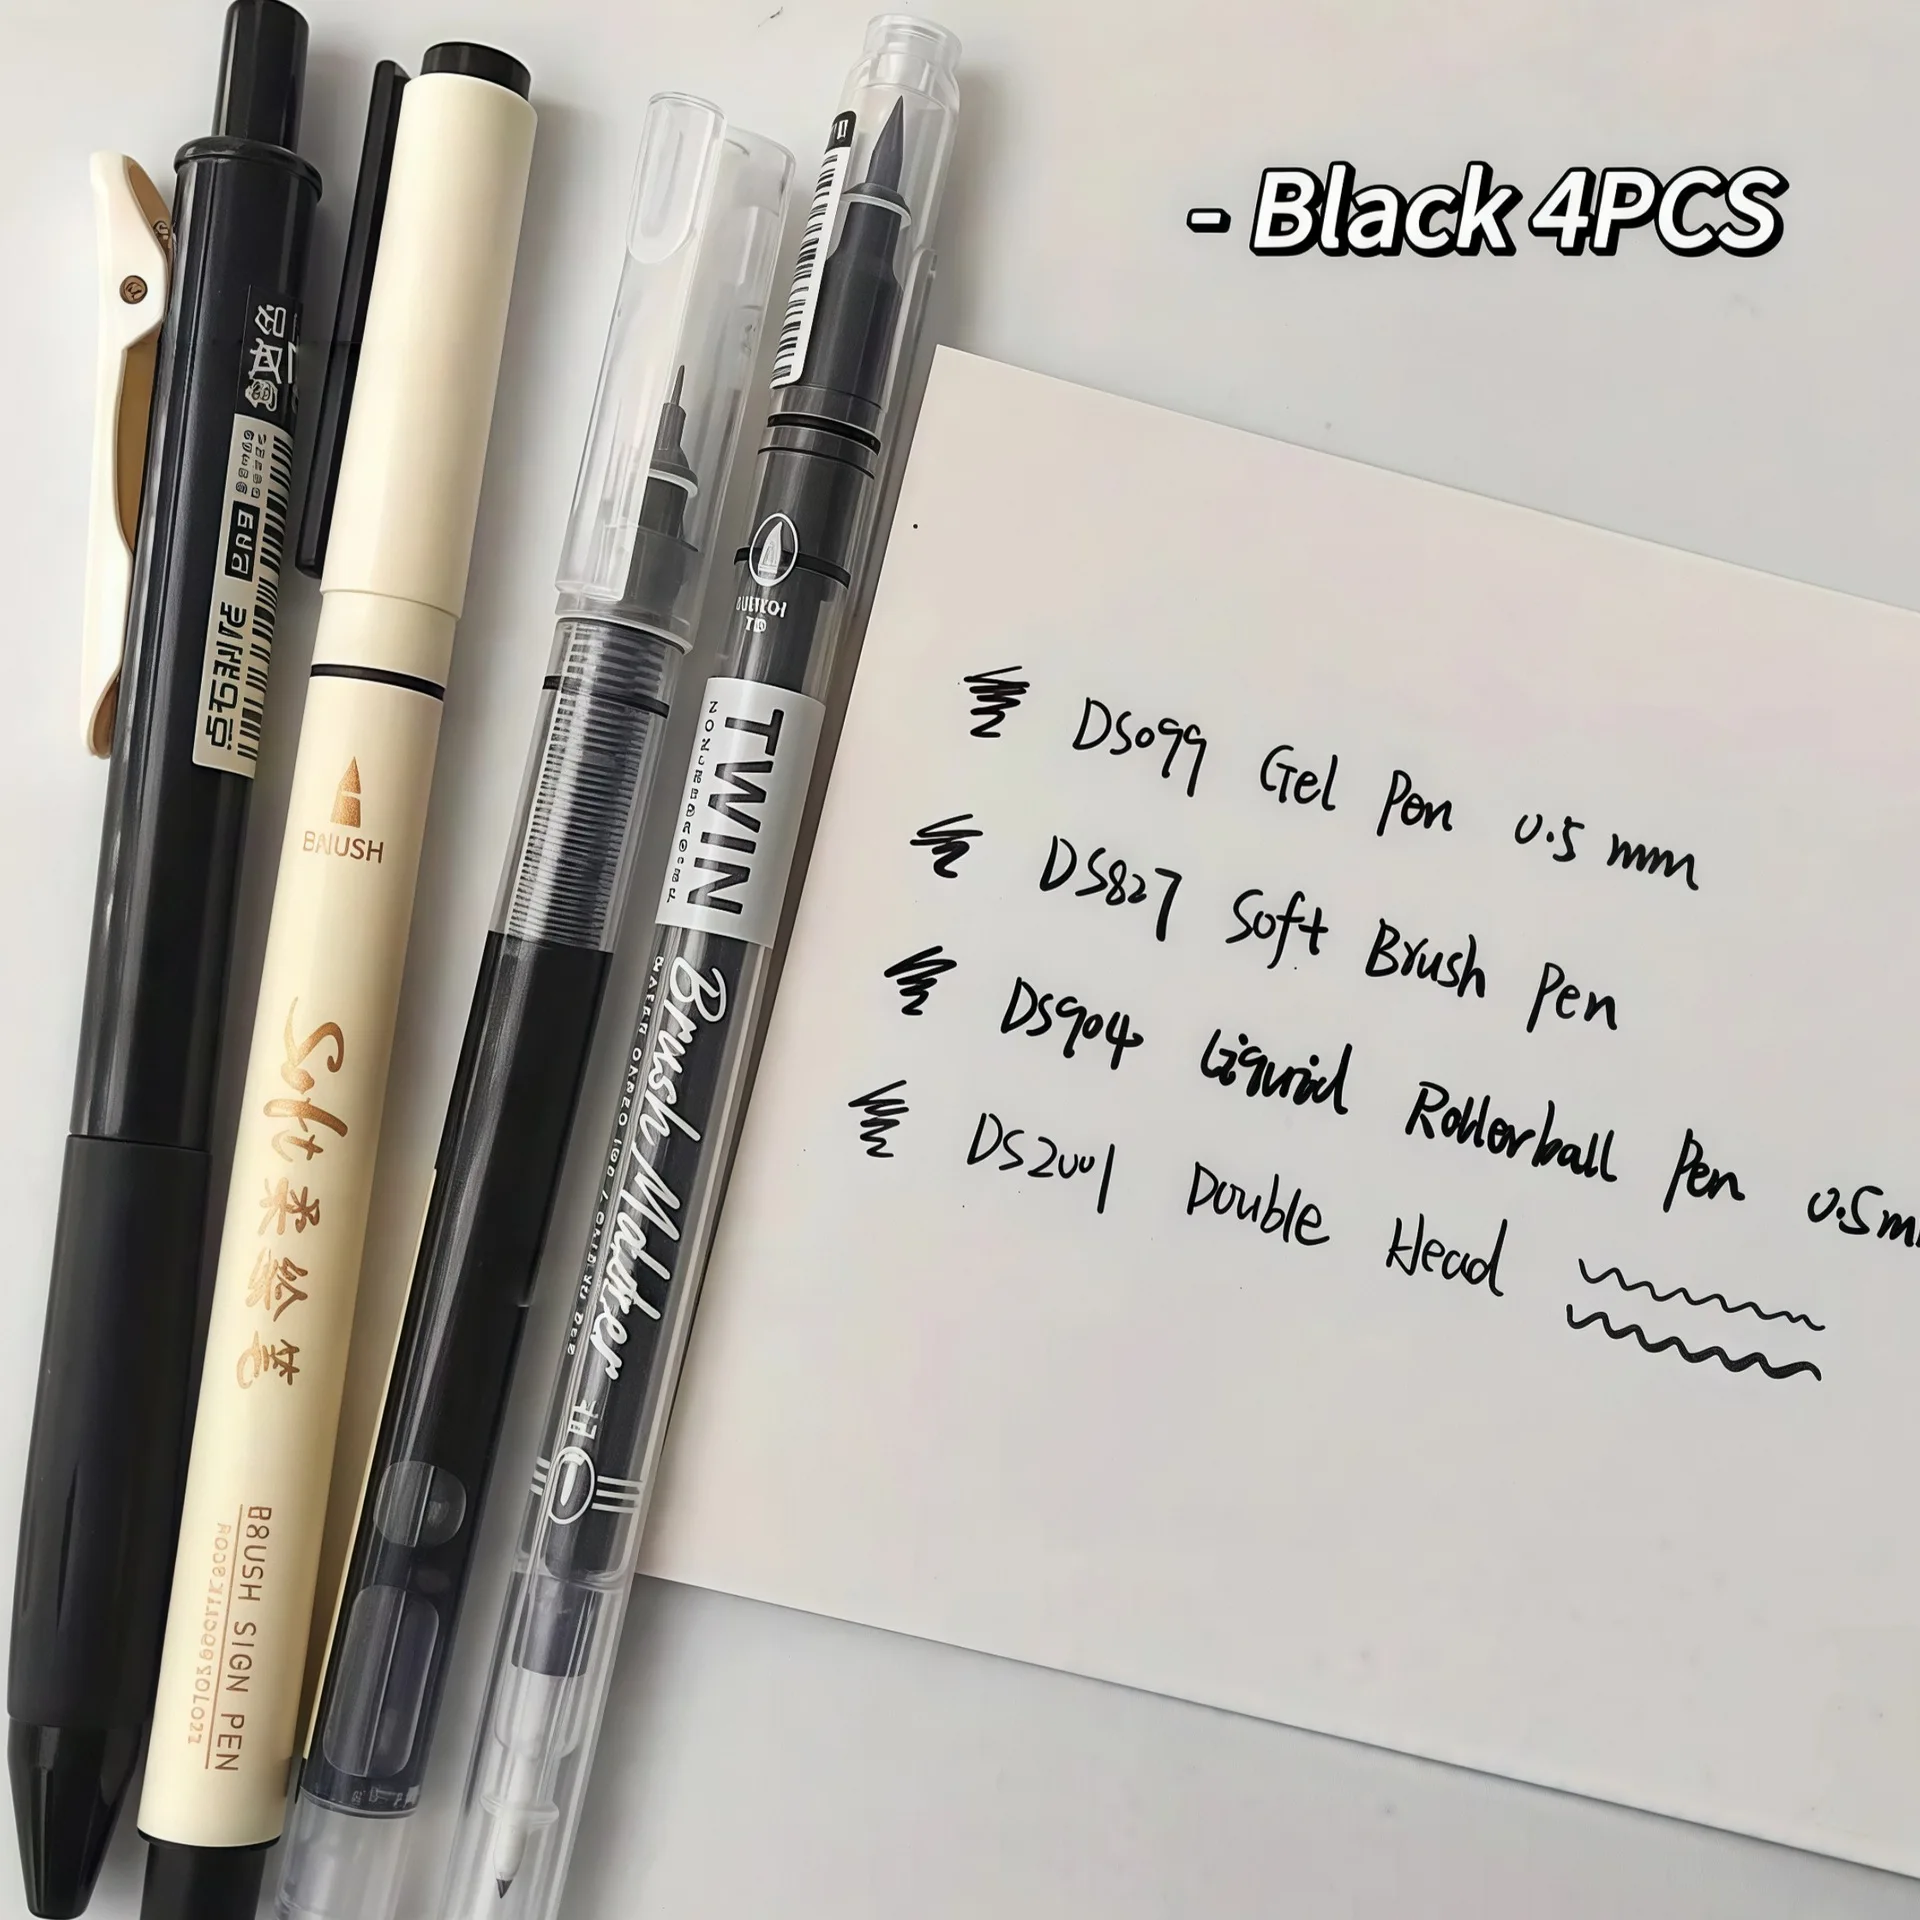 - Black 4PCS
DS099 Gel Pen 0.5 mm
DS827 Soft Brush Pen
DS904 Liquid Rollerball Pen 0.5m
DS2001 Double Head
BAIUSH
Soft 柔绘笔
B8USH SIGN PEN
TWIN
Brush Marker